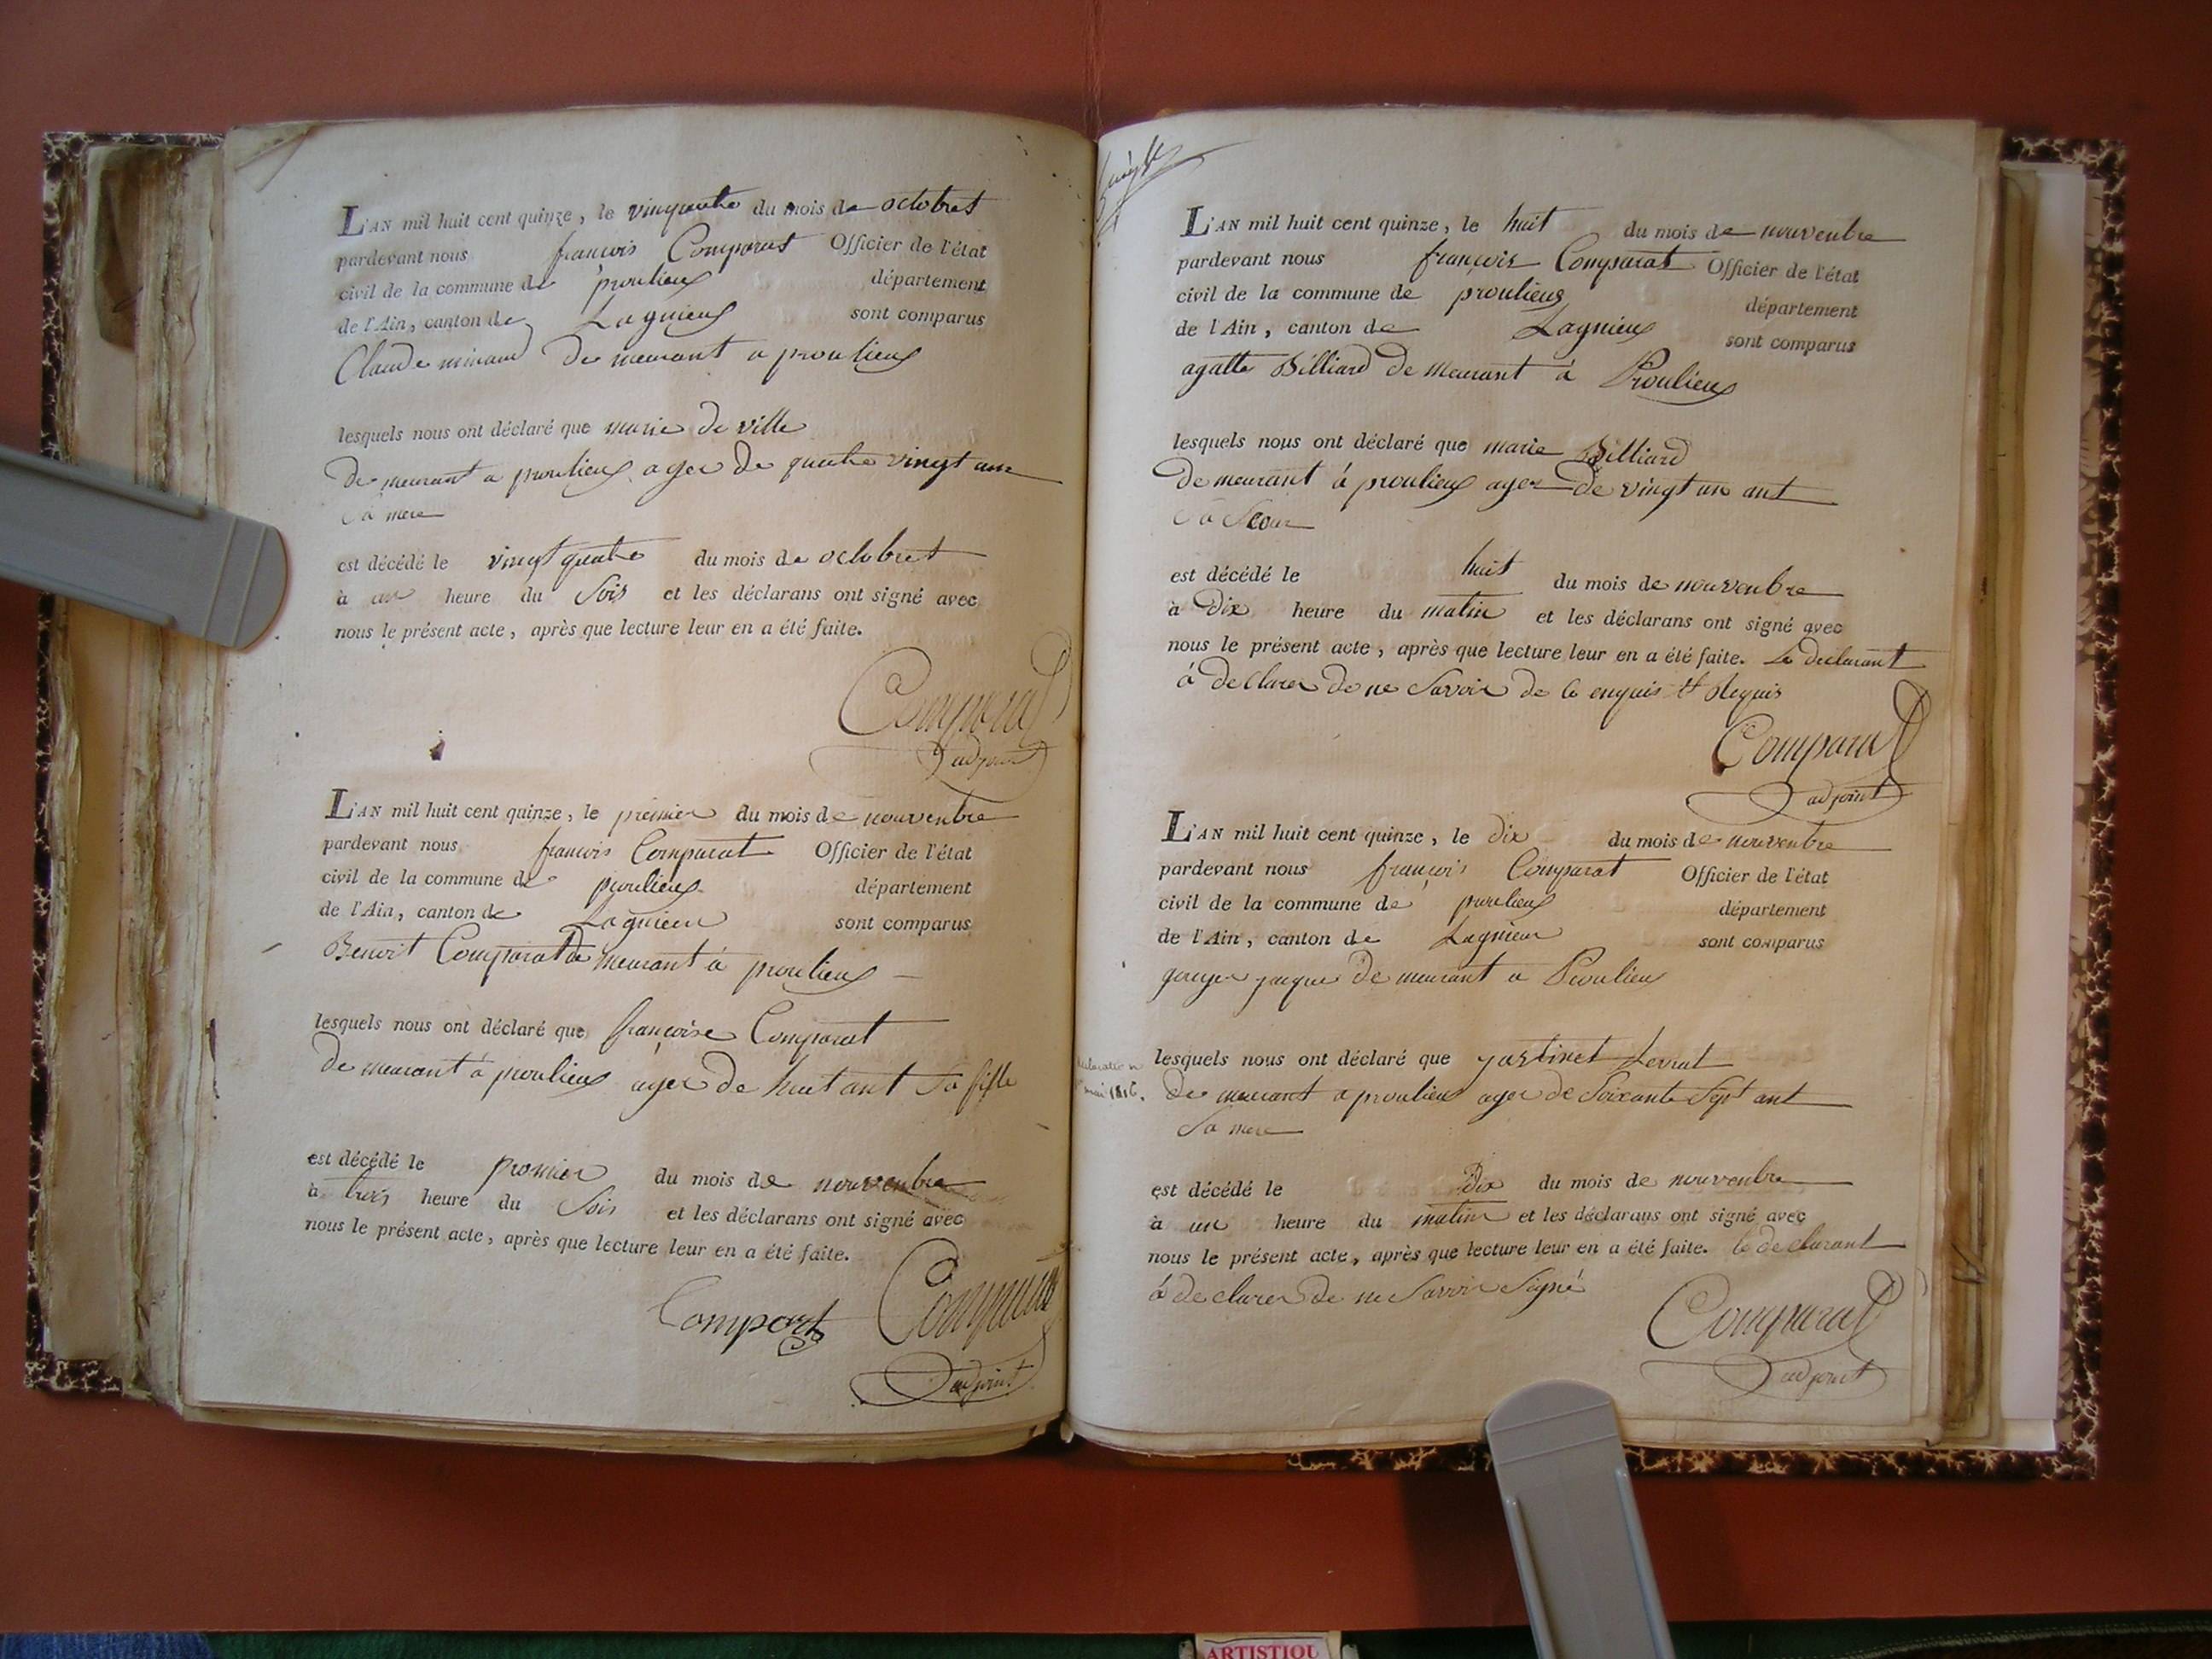 L'AN mil huit cent quinze, le vingquatre du mois de octobret
pardevant nous francois Comparat Officier de l'état
civil de la commune de proulieux département
de l'Ain, canton de Lagnieux sont comparus
Claude minand de meurant a proulieux
lesquels nous ont déclaré que marie de ville
de meurant a proulieux ager de quatre vingt
sa mere
est décédé le vingt quatre du mois de octobret
à un heure du Soir et les déclarans ont signé avec
nous le présent acte, après que lecture leur en a été faite.
Comparat
adjoint
L'AN mil huit cent quinze, le premier du mois de nouvenbre
pardevant nous francois Comparat Officier de l'état
civil de la commune de proulieux département
de l'Ain, canton de Lagnieu sont comparus
Benoit Comparat de meurant à proulieux
lesquels nous ont déclaré que françoise Comparat
de meurant à proulieux ager de huit ant Sa fille
est décédé le promier du mois de nouvenbre
à trois heure du Soir et les déclarans ont signé avec
nous le présent acte, après que lecture leur en a été faite.
Comparat
adjoint
L'AN mil huit cent quinze, le huit du mois de nouvenbre
pardevant nous françois Comparat Officier de l'état
civil de la commune de proulieux département
de l'Ain, canton de Lagnieux sont comparus
agatte Billiard de meurant à Proulieux
lesquels nous ont déclaré que marie Billiard
de meurant à proulieux ager de vingt un ant
Sa Seour
est décédé le huit du mois de nouvenbre
à Dix heure du matin et les déclarans ont signé avec
nous le présent acte, après que lecture leur en a été faite. Le declarant
à declarer de ne Savoir de ce enquis et Requis
Comparat
adjoint
L'AN mil huit cent quinze, le dix du mois de nouvenbre
pardevant nous françois Comparat Officier de l'état
civil de la commune de proulieux département
de l'Ain, canton de Lagnieu sont comparus
jaque de meurant a Proulieu
lesquels nous ont déclaré que Levrat
de meurant a proulieu ager de Soixante Sept ant
Sa mere
mai 1816.
est décédé le Dix du mois de nouvenbre
à un heure du matin et les déclarans ont signé avec
nous le présent acte, après que lecture leur en a été faite. le declarant
à declarer de ne Savoir Signé
Comparat
adjoint
ARTISTIQU